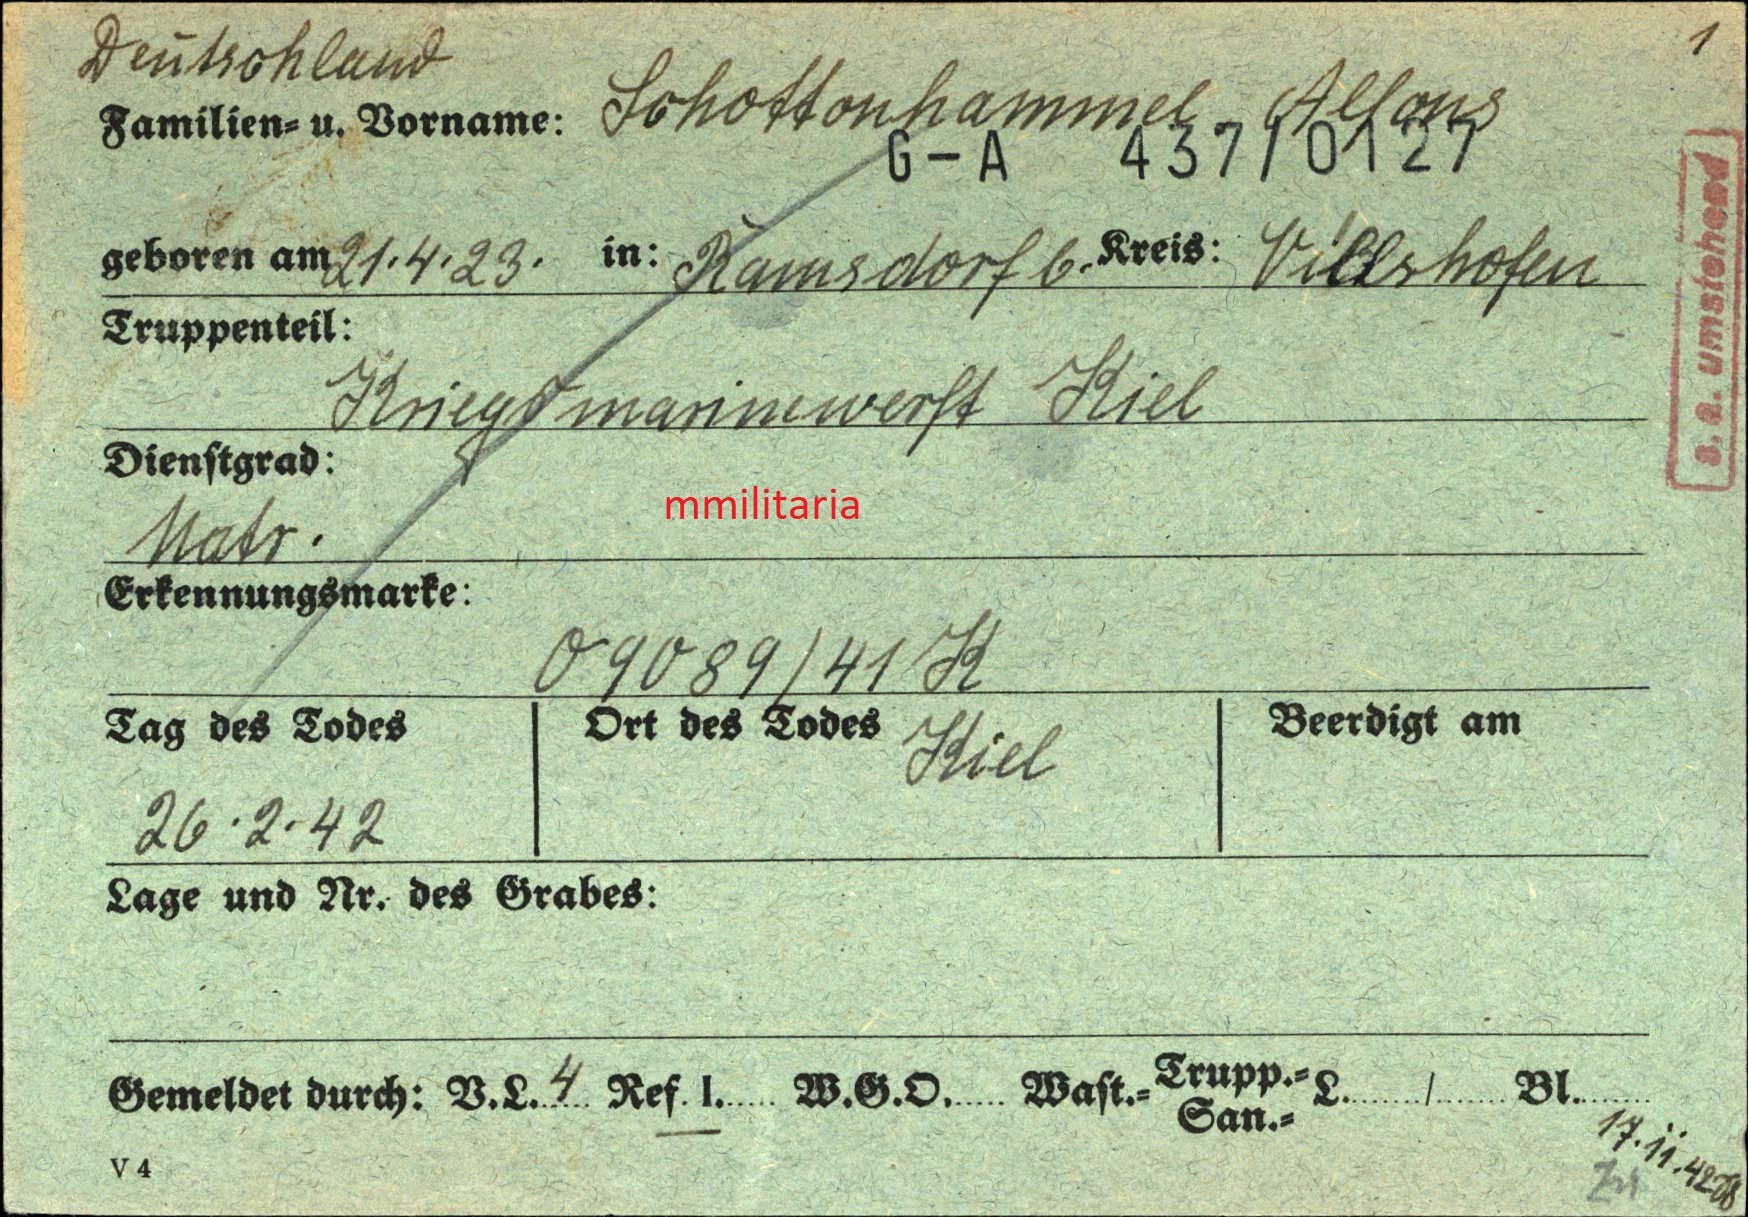 1
Deutschland
Familien= u. Vorname: Schottenhammel Alfons
G-A 437/0127
geboren am 21.4.23. in: Ramsdorf b. Kreis: Vilshofen
Truppenteil:
Kriegsmarinewerft Kiel
Dienstgrad:
Matr.
mmilitaria
Erkennungsmarke:
O 9089/41 K
Tag des Todes Ort des Todes Kiel Beerdigt am
26.2.42
Lage und Nr. des Grabes:
Gemeldet durch: V.L. 4 Ref. I. W.G.O. Wast.= Trupp.= San.= L. / Bl.
17.11.42
V 4
s. a. umstehend